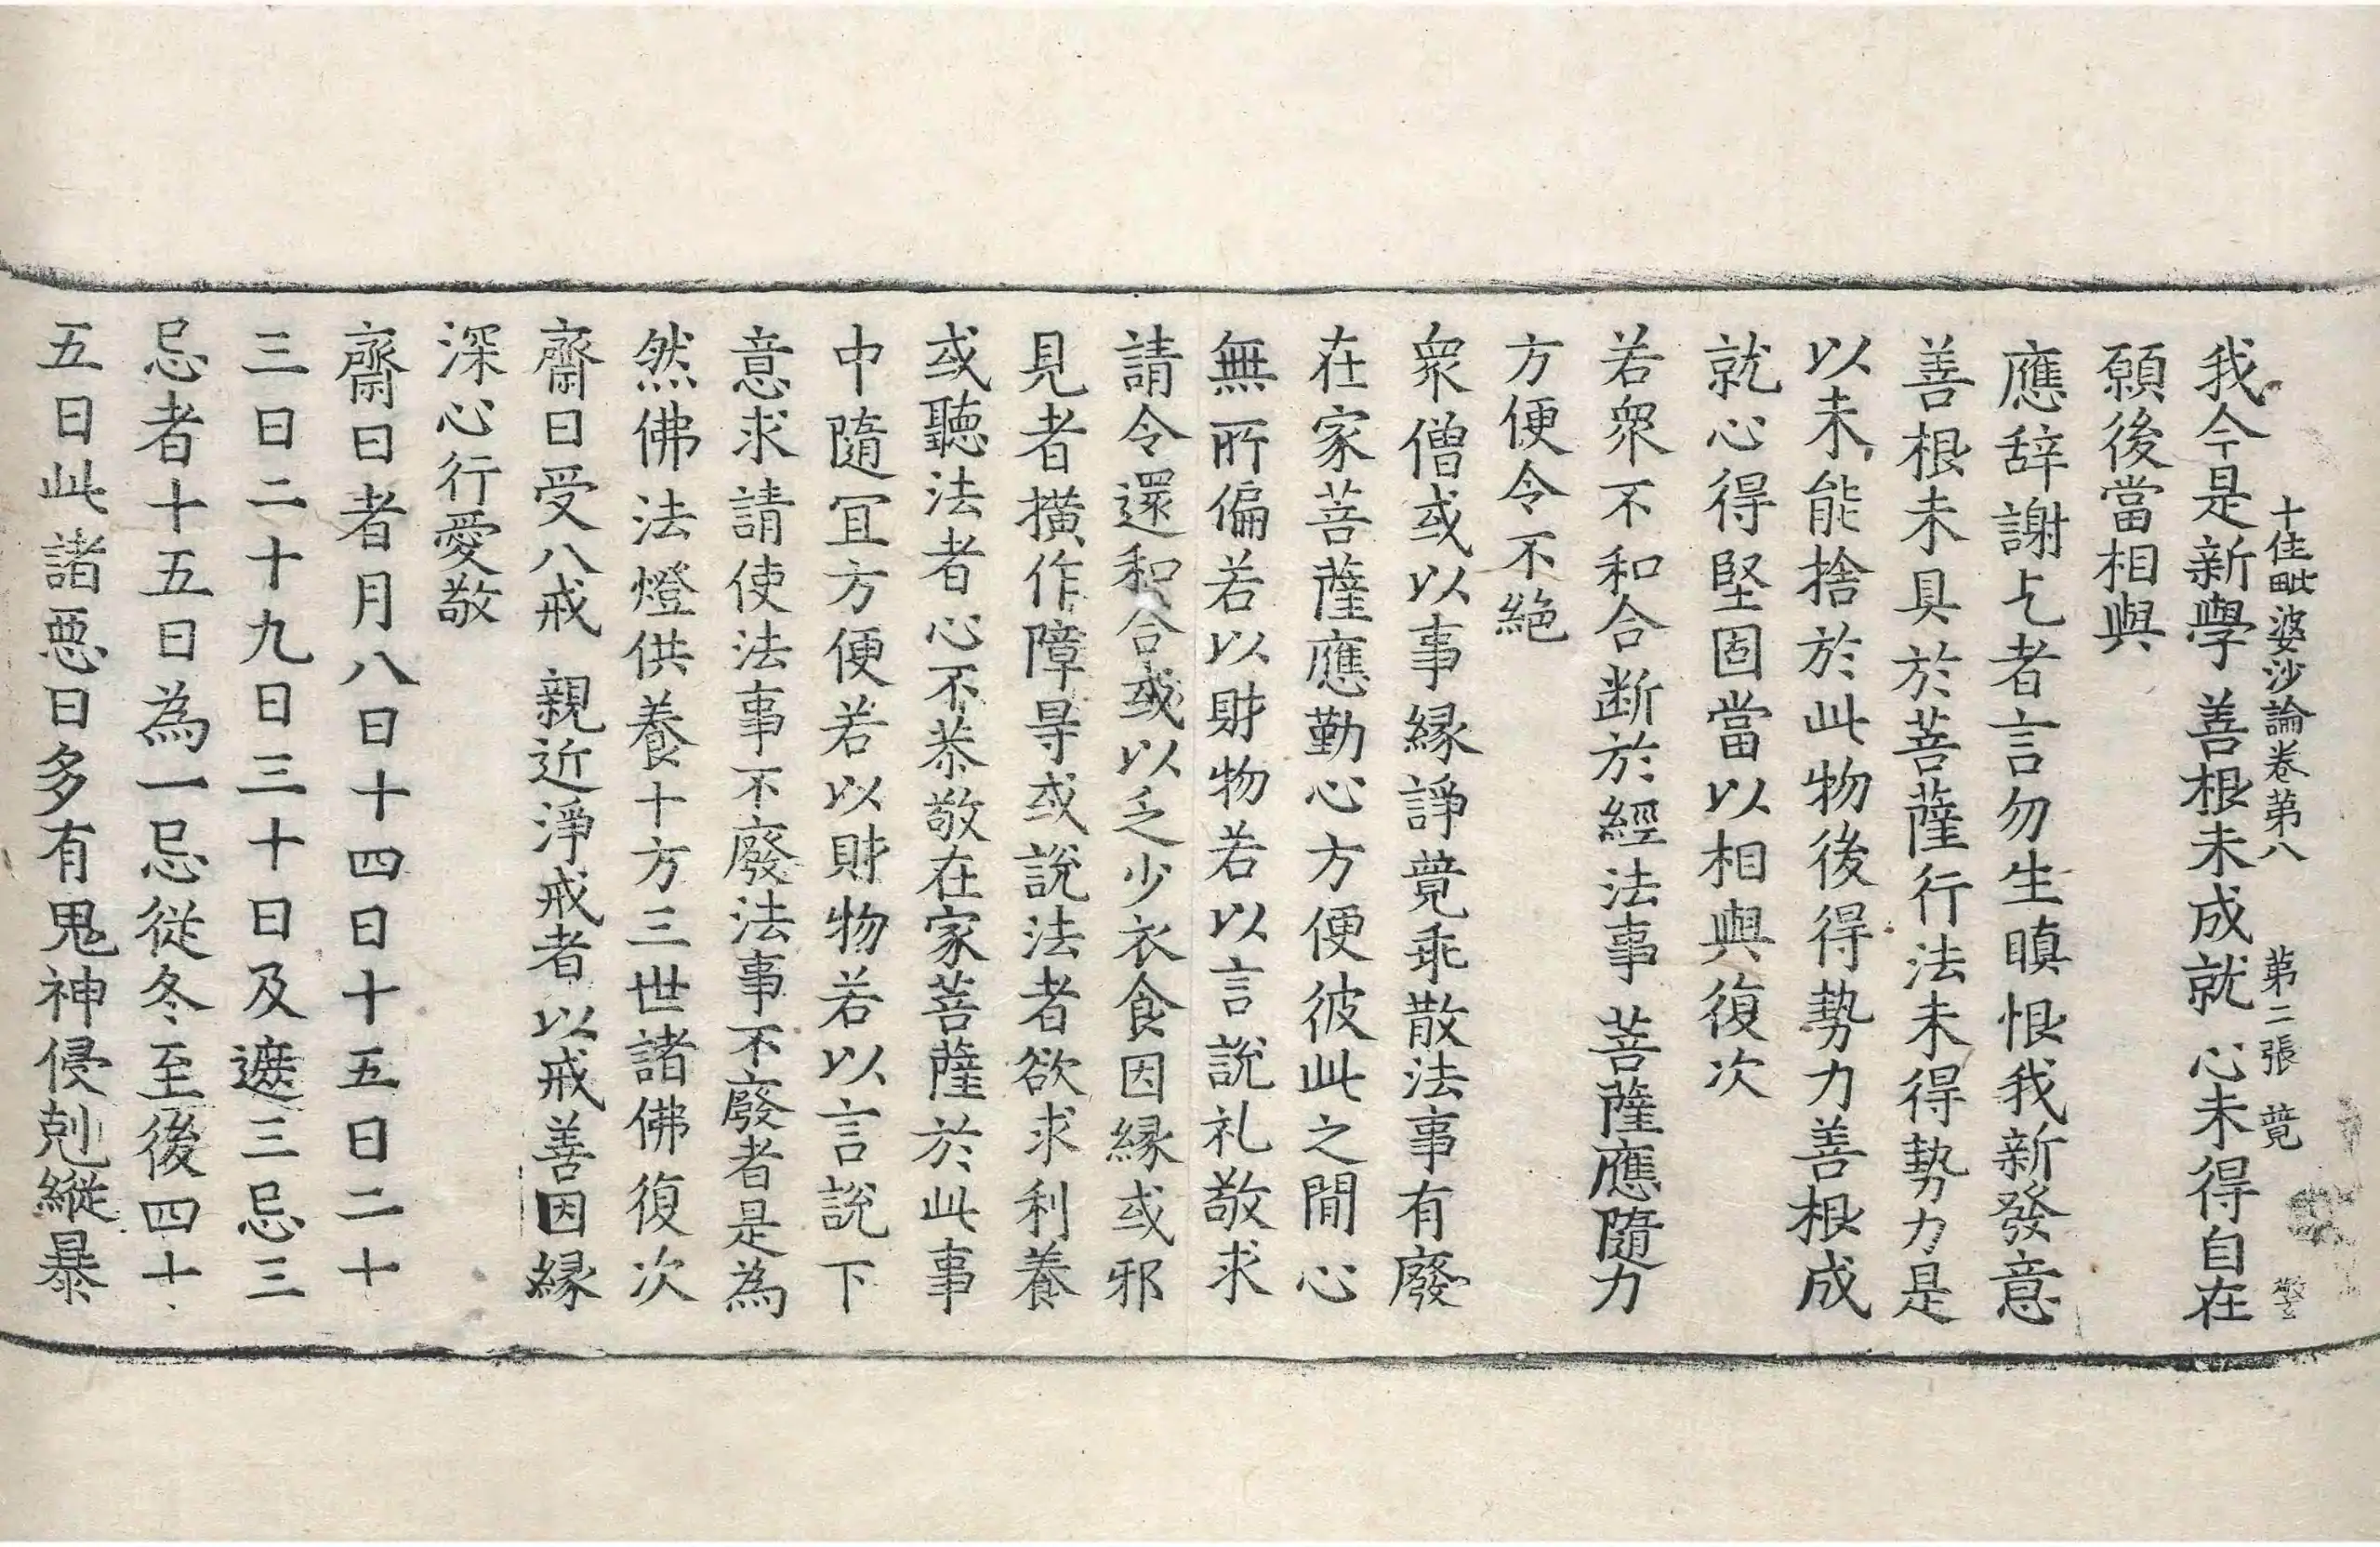 十住毗婆沙論卷第八　第二張　竟
我今是新學　善根未成就　心未得自在
願後當相與
應辞謝乞者言勿生瞋恨我新發意
善根未具於菩薩行法未得勢力是
以未能捨於此物後得勢力善根成
就心得堅固當以相與復次
若衆不和合　断於經法事　菩薩應隨力
方便令不絶
衆僧或以事縁諍竟乖散法事有廢
在家菩薩應勤心方便彼此之間心
無所偏若以財物若以言說礼敬求
請令還和合或以乏少衣食因縁或邪
見者橫作障㝵或說法者欲求利養
或聽法者心不恭敬在家菩薩於此事
中隨冝方便若以財物若以言說下
意求請使法事不廢法事不廢者是為
然佛法燈供養十方三世諸佛復次
齋日受八戒　親近淨戒者　以戒善因縁
深心行愛敬
齋日者月八日十四日十五日二十
三日二十九日三十日及遮三忌三
忌者十五日為一忌從冬至後四十
五日此諸惡日多有鬼神侵剋縱暴